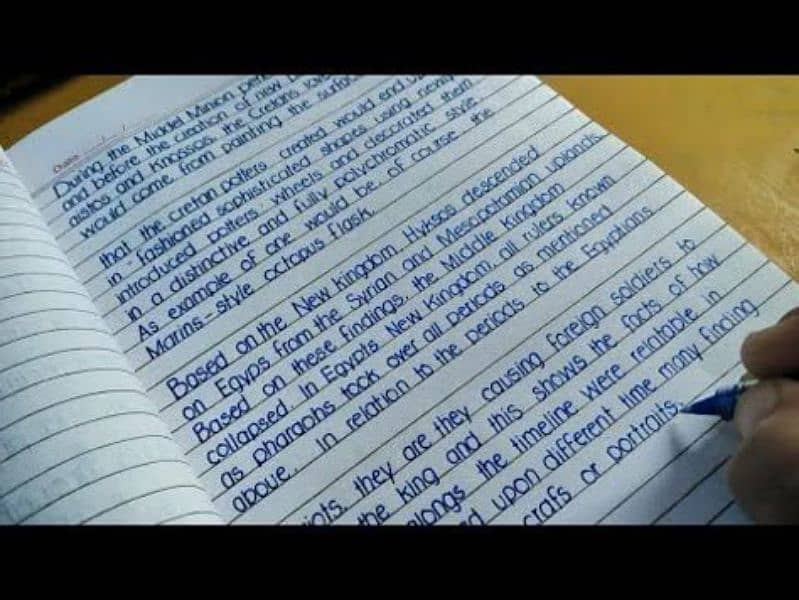 During the Middel Minion peri
and before the creation of new
aistos and Knossos, the Cretans love
would come from painting the surfac
that the cretan potters created would end up
in "fashioned sophisticated shapes using newly
introduced potters' wheels and decorated them
in a distinctive and fully polychromatic style
As example of one would be, of course the
Marins-style octopus flask.
Based on the New Kingdom, Hyksos descended
on Egyps from the Syrian and Mesopotamian uplands
Based on these findings, the Middle Kingdom
collapsed. In Egypts New Kingdom, all rulers known
as pharaohs took over all periods as mentioned
above. In relation to the periods to the Egyptians
iots, they are they causing foreign soldiers to
the king and this shows the facts of how
alongs the timeline were relatable in
d upon different time many finding
crafs or portraits.